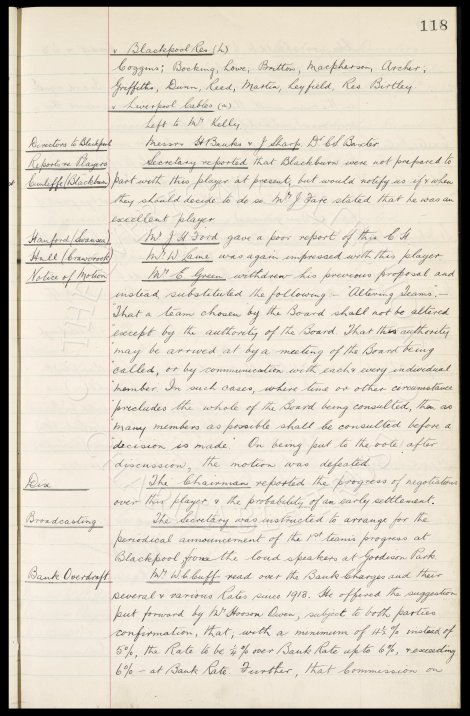 118
v Blackpool Res (h)
Coggins; Bocking, Lowe, Britton, Macpherson, Archer,
Griffiths, Dunn, Reed, Martin, Leyfield, Res Birtley
v Liverpool Cables (a)
Left to Mr Kelly
Directors to Blackpool Messrs H Banks & J Sharp, Dr C S Baxter
Reports re Players Secretary reported that Blackburn were not prepared to
Cunliffe (Blackburn) part with this player at present, but would notify us if & when
they should decide to do so. Mr J Fare stated that he was an
excellent player
Hanford (Swansea) Mr J H Ford gave a poor report of this C H
Hull (Crawcrook) Mr W Lane was again impressed with this player
Notice of Motion Mr C Green withdrew his previous proposal and
instead substituted the following – "Altering Teams" –
"That a team chosen by the Board shall not be altered
"except by the authority of the Board. That this authority
"may be arrived at by a meeting of the Board being
"called, or by communication with each & every individual
"member. In such cases, where time or other circumstance
"precludes the whole of the Board being consulted, then as
"many members as possible shall be consulted before a
"decision is made." On being put to the vote, after
discussion, the motion was defeated.
Dix The Chairman reported the progress of negotiations
over this player & the probability of an early settlement.
Broadcasting The Secretary was instructed to arrange for the
periodical announcement of the 1st team's progress at
Blackpool from the loud speakers at Goodison Park.
Bank Overdraft Mr W. C. Cuff read over the Bank Charges and their
several & various Rates since 1913. He offered the suggestion
put forward by Mr Hooson Owen, subject to both parties
confirmation, that, with a minimum of 4½% instead of
5%, the Rate to be ½% over Bank Rate up to 6%, & exceeding
6% – at Bank Rate. Further, that Commission on